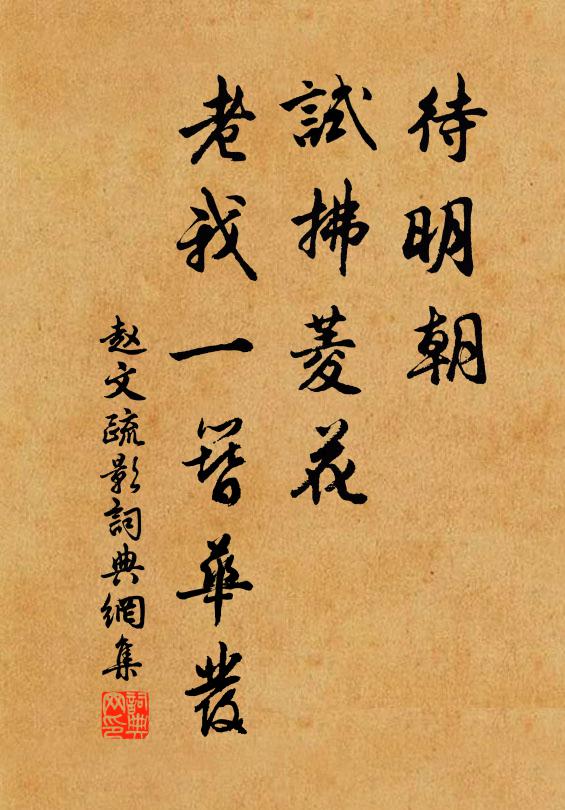 待明朝
試拂菱花
老我一簪華發
赵文疏影詞典網集
詞典网印